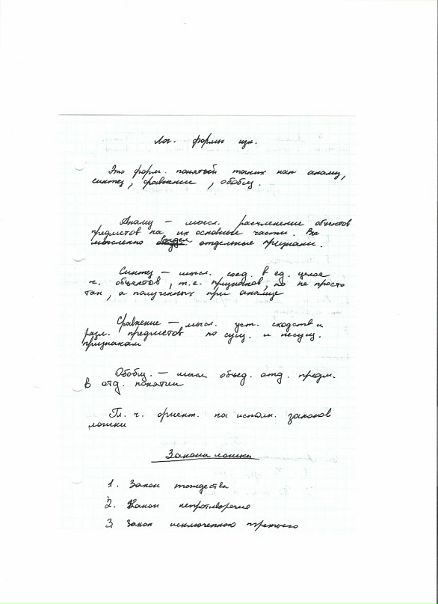 Лог. формы
Это форм. понятий таких как анализ,
синтез, сравнение, обобщ.
Анализ — мысл. расчленение объектов
предметов на их основные части.
мысленно отдельные признаки.
Синтез — мысл. соед. в ед. целое
ч. объектов, т.е. признаков, но не просто
так, а полученных при анализе
Сравнение — мысл. уст. сходств и
разл. предметов по сущ. и несущ.
признакам
Обобщ. — мысл. объед. отд. предм.
в отд. понятии
ч. ориент. на исполн. законов
логики
Законы логики
1. Закон тождества
2. Закон непротиворечия
3. Закон исключенного третьего